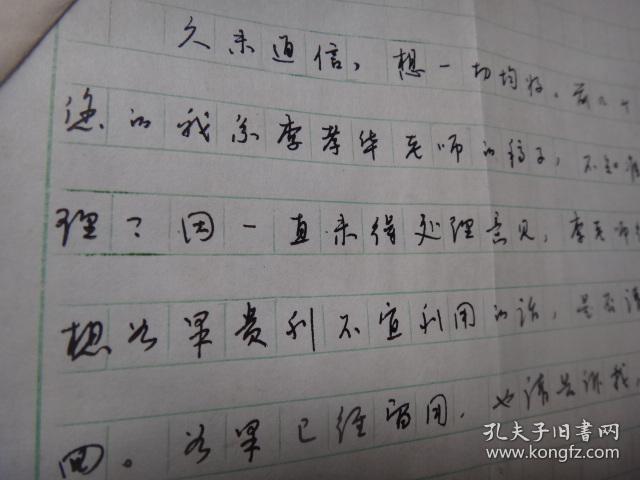 久未通信，想一切均好。前几
您的我系李孝华老师的稿子，不知
理？因一直未得处理意见，李老师
想如果贵刊不宜刊用的话，是否请
回。如果已经留用，也请告诉我，
孔夫子旧书网
www.kongfz.com